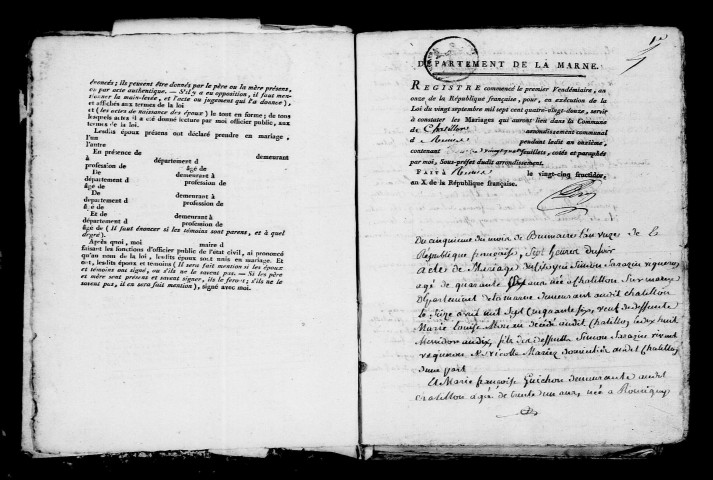 énoncés; ils peuvent être donnés par le père ou la mère présens,
ou par acte authentique. — S'il y a eu opposition, il faut men-
tionner la main-levée, et l'acte ou jugement qui l'a donnée),
et affichés aux termes de la loi
et (les actes de naissance des époux) le tout en forme; de tous
lesquels actes il a été donné lecture par moi officier public, aux
termes de la loi.
Lesdits époux présens ont déclaré prendre en mariage,
l'un
l'autre
En présence de demeurant
à département d
profession de âgé de
De demeurant à
département d profession de
âgé de
De demeurant à
département d profession de
â e de
Et de demeurant à
département d profession de
âgé de (Il faut énoncer si les témoins sont parens, et à quel
degré).
Après quoi, moi maire d
faisant les fonctions d'officier public de l'état civil, ai prononcé
qu'au nom de la loi, lesdits époux sont unis en mariage. Et
ont, lesdits époux et témoins (Il sera fait mention si les époux
et témoins ont signé, ou s'ils ne le savent pas. — Si les père
et mère sont présens et savent signer, ils le feront; s'ils ne le
savent pas, il en sera fait mention), signé avec moi.
DÉPARTEMENT DE LA MARNE.
REGISTRE commencé le premier Vendémiaire, an
onze de la République française, pour, en exécution de la
Loi du vingt septembre mil sept cent quatre-vingt-douze, servir
à constater les Mariages qui auront lieu dans la Commune
de Chatillon arrondissement communal
d Reims pendant ledit an onzième,
contenant feuillets, cotés et paraphés
par moi, Sous-préfet dudit arrondissement.
FAIT à Reims le vingt-cinq fructidor,
an X de la République française.
Du cinquieme du mois de Brumaire l'an onze de la
République française, Sept heures du soir
acte de Mariage du Citoyen Simon Sarazin vigneron
agé de quarante Six ans née à Chatillon Sur marne
Département de la marne demeurant audit chatillon
le Seize avril mil Sept Cinquante six, veuf de deffunte
Marie Louise Moreau décédé audit Chatillon le dix huit
Messidor an dix, fils de deffunt Simon Sarazin vivant
vigneron & Nicolle Mariez domiciliés audit Chatillon
d'une part
Et Marie françoise Guichon demeurante audit
chatillon agée de trente deux ans, née à Romigny